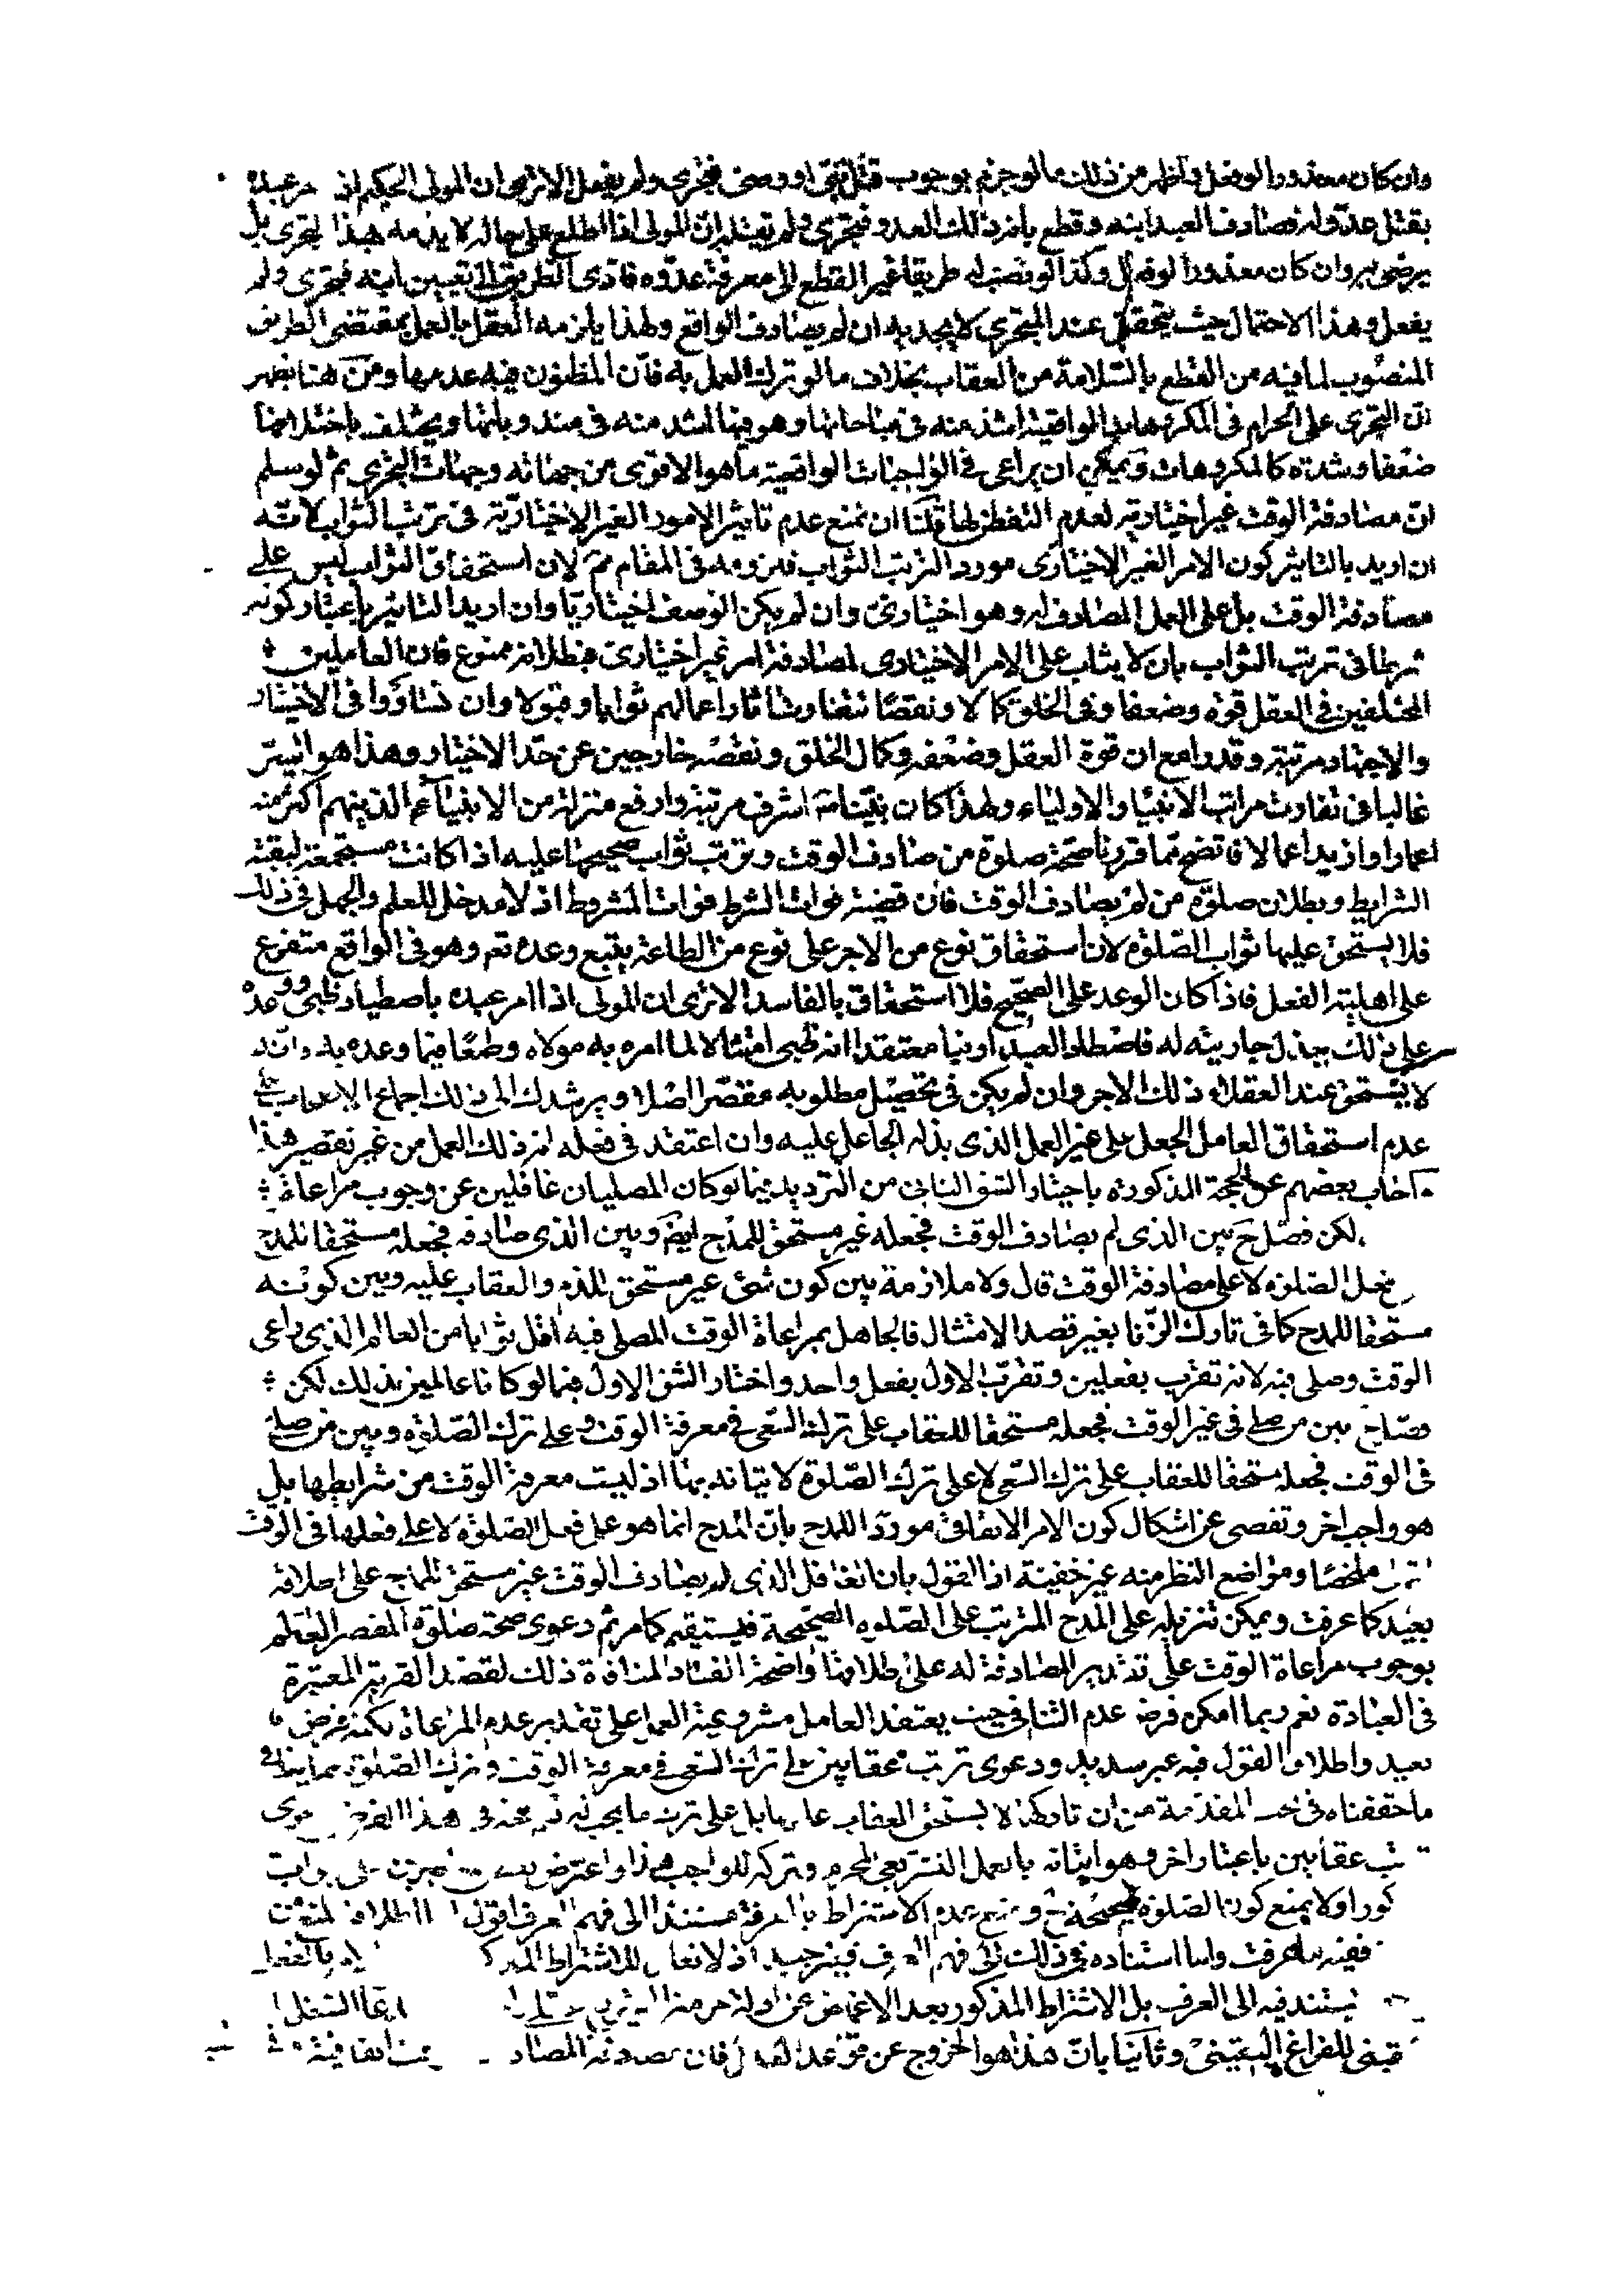 وان كان معذورا لو فعل واظهر من ذلك ما لو جزم بوجوب قتل نبى او وصى فتجرى ولم يفعل الا ترى ان المولى الحكيم اذا امر عبده
بقتل عدو له فصادف العبد ابنه وقطع بانه ذلك العدو فتجرى ولم يقتله ان المولى اذا اطلع على حاله لا يذمه بهذا التجرى بل
يرضى به وان كان معذورا لو فعل وكذا لو نصب له طريقا غير القطع الى معرفة عدوه فادى الطريق الى تعيين ابنه فتجرى ولم
يفعل وهذا الاحتمال حيث يتحقق عند المتجرى لا يجديه ان لم يصادف الواقع ولهذا يلزمه العقل بالعمل بمقتضى الطريق
المنصوب لما فيه من القطع بالسلامة من العقاب بخلاف ما لو ترك العمل به فان المظنون فيه عدمها ومن هنا يظهر
ان التجرى على الحرام فى المكروهات الواقعية اشد منه فى مباحاتها وهو فيها اشد منه فى مندوباتها ويختلف باختلافها
ضعفا وشدة كالمكروهات ويمكن ان يراعى فى الواجبات الواقعية ما هو الاقوى من جهاته وجهات التجرى ثم لو سلم
ان مصادفة الوقت غير اختيارية لعدم التفطن لها فلنا ان نمنع عدم تاثير الامور الغير الاختيارية فى ترتب الثواب لانه
ان اريد بالتاثير كون الامر الغير الاختيارى موردا لترتب الثواب فلزومه فى المقام مم لان استحقاق الثواب ليس على
مصادفة الوقت بل على العمل المصادف له وهو اختيارى وان لم يكن الوصف اختياريا وان اريد التاثير باعتبار كونه
شرطا فى ترتب الثواب بان لا يثاب على الامر الاختيارى لمصادفة امر غير اختيارى فبطلانه ممنوع فان العاملين
المختلفين فى العقل قوة وضعفا وفى الخلق كمالا ونقصا تتفاوت آثار اعمالهم ثوابا وقبولا وان تساووا فى الاختيار
والاجتهاد مرتبة وقدرا مع ان قوة العقل وضعفه وكمال الخلق ونقصه خارجين عن حد الاختيار وهذا هو السر
غالبا فى تفاوت مراتب الانبياء والاولياء ولهذا كان نبينا ص اشرف مرتبة وارفع منزلة من الانبياء ع الذينهم اكثر منه
اعمارا وازيد اعمالا فاتضح مما قررنا صحة صلوة من صادف الوقت وترتب ثواب صحيحها عليه اذا كانت مستجمعة لبقية
الشرايط وبطلان صلوة من لم يصادف الوقت فان قضية فوات الشرط فوات المشروط اذ لا مدخل للعلم والجهل فى ذلك
فلا يستحق عليها ثواب الصلوة لان استحقاق نوع من الاجر على نوع من الطاعة يتبع وعده تعم وهو فى الواقع متفرع
على اهلية الفعل فاذا كان الوعد على الصحيح فلا استحقاق بالفاسد الا ترى ان المولى اذا امر عبده باصطياد ظبى ووعده
على ذلك ببذل جاريته له فاصطاد العبد ارنبا معتقدا انه ظبى امتثالا لما امره به مولاه وطمعا فيما وعده به فانه
لا يستحق عند العقلاء ذلك الاجر وان لم يكن فى تحصيل مطلوبه مقصرا اصلا ويرشدك الى ذلك اجماع الاصحاب على
عدم استحقاق العامل الجعل على غير العمل الذى بذله الجاعل عليه وان اعتقد فى فعله انه ذلك العمل من غير تقصير هذا
واجاب بعضهم عن الحجة المذكورة باختيار الشق الثانى من الترديد فيما لو كان المصليان غافلين عن وجوب مراعاة
لكن فصل ح بين الذى لم يصادف الوقت فجعله غير مستحق للمدح ايضا وبين الذى صادفه فجعله مستحقا للمدح
بفعل الصلوة لا على مصادفة الوقت قال ولا ملازمة بين كون شئ غير مستحق للذم والعقاب عليه وبين كونه
مستحقا للمدح كما فى تارك الزنا بغير قصد الامتثال فالجاهل بمراعاة الوقت المصلى فيه اقل ثوابا من العالم الذى راعى
الوقت وصلى فيه لانه تقرب بفعلين وتقرب الاول بفعل واحد واختار الشق الاول فيما لو كانا عالمين بذلك لكن
فصل ح بين من صلى فى غير الوقت فجعله مستحقا للعقاب على ترك السعى فى معرفة الوقت وعلى ترك الصلوة وبين من صلى
فى الوقت فجعله مستحقا للعقاب على ترك السعى لا على ترك الصلوة لاتيانه بها اذ ليست معرفة الوقت من شرايطها بل
هو واجب اخر وتفصى عن اشكال كون الامر الاتفاقى موردا للمدح بان المدح انما هو على فعل الصلوة لا على فعلها فى الوقت
انتهى ملخصا ومواضع النظر منه غير خفية اذ القول بان الغافل الذى لم يصادف الوقت غير مستحق للمدح على اطلاقه
بعيد كما عرفت ويمكن تنزيله على المدح المترتب على الصلوة الصحيحة فيستقيم كما مر ثم دعوى صحة صلوة المقصر العالم
بوجوب مراعاة الوقت على تقدير المصادفة له على اطلاقها واضحة الفساد لمنافاة ذلك لقصد القربة المعتبرة
فى العبادة نعم ربما امكن فرض عدم التنافى حيث يعتقد العامل مشروعية العمل على تقدير عدم المراعاة لكنه فرض
بعيد واطلاق القول فيه غير سديد ودعوى ترتب عقابين على ترك السعى فى معرفة الوقت وترك الصلوة مما ينافى
ما حققناه فى بحث المقدمة من ان تاركها لا يستحق العقاب عليها بل على ترك ما يجب له نعم يتجه فى هذا الفرض دعوى
ترتب عقابين باعتبار اخر وهو اتيانه بالعمل التشريعى المحرم وتركه للواجب هذا واعترض بعض على الجواب
كور اولا بمنع كون الصلوة صحيحة ح ومنع عدم الاشتراط بالمعرفة مستندا الى فهم العرف اقول اما اطلاق المنع
ففيه ما عرفت واما استناده فى ذلك الى فهم العرف فغير جيد اذ لا تعلق للاشتراط المذكور
يستند فيه الى العرف بل الاشتراط المذكور بعد الاغماض عن ادلة حرمة التشريع
يقينى للفراغ اليقينى وثانيا بان هذا هو الخروج عن قواعد العدل فان